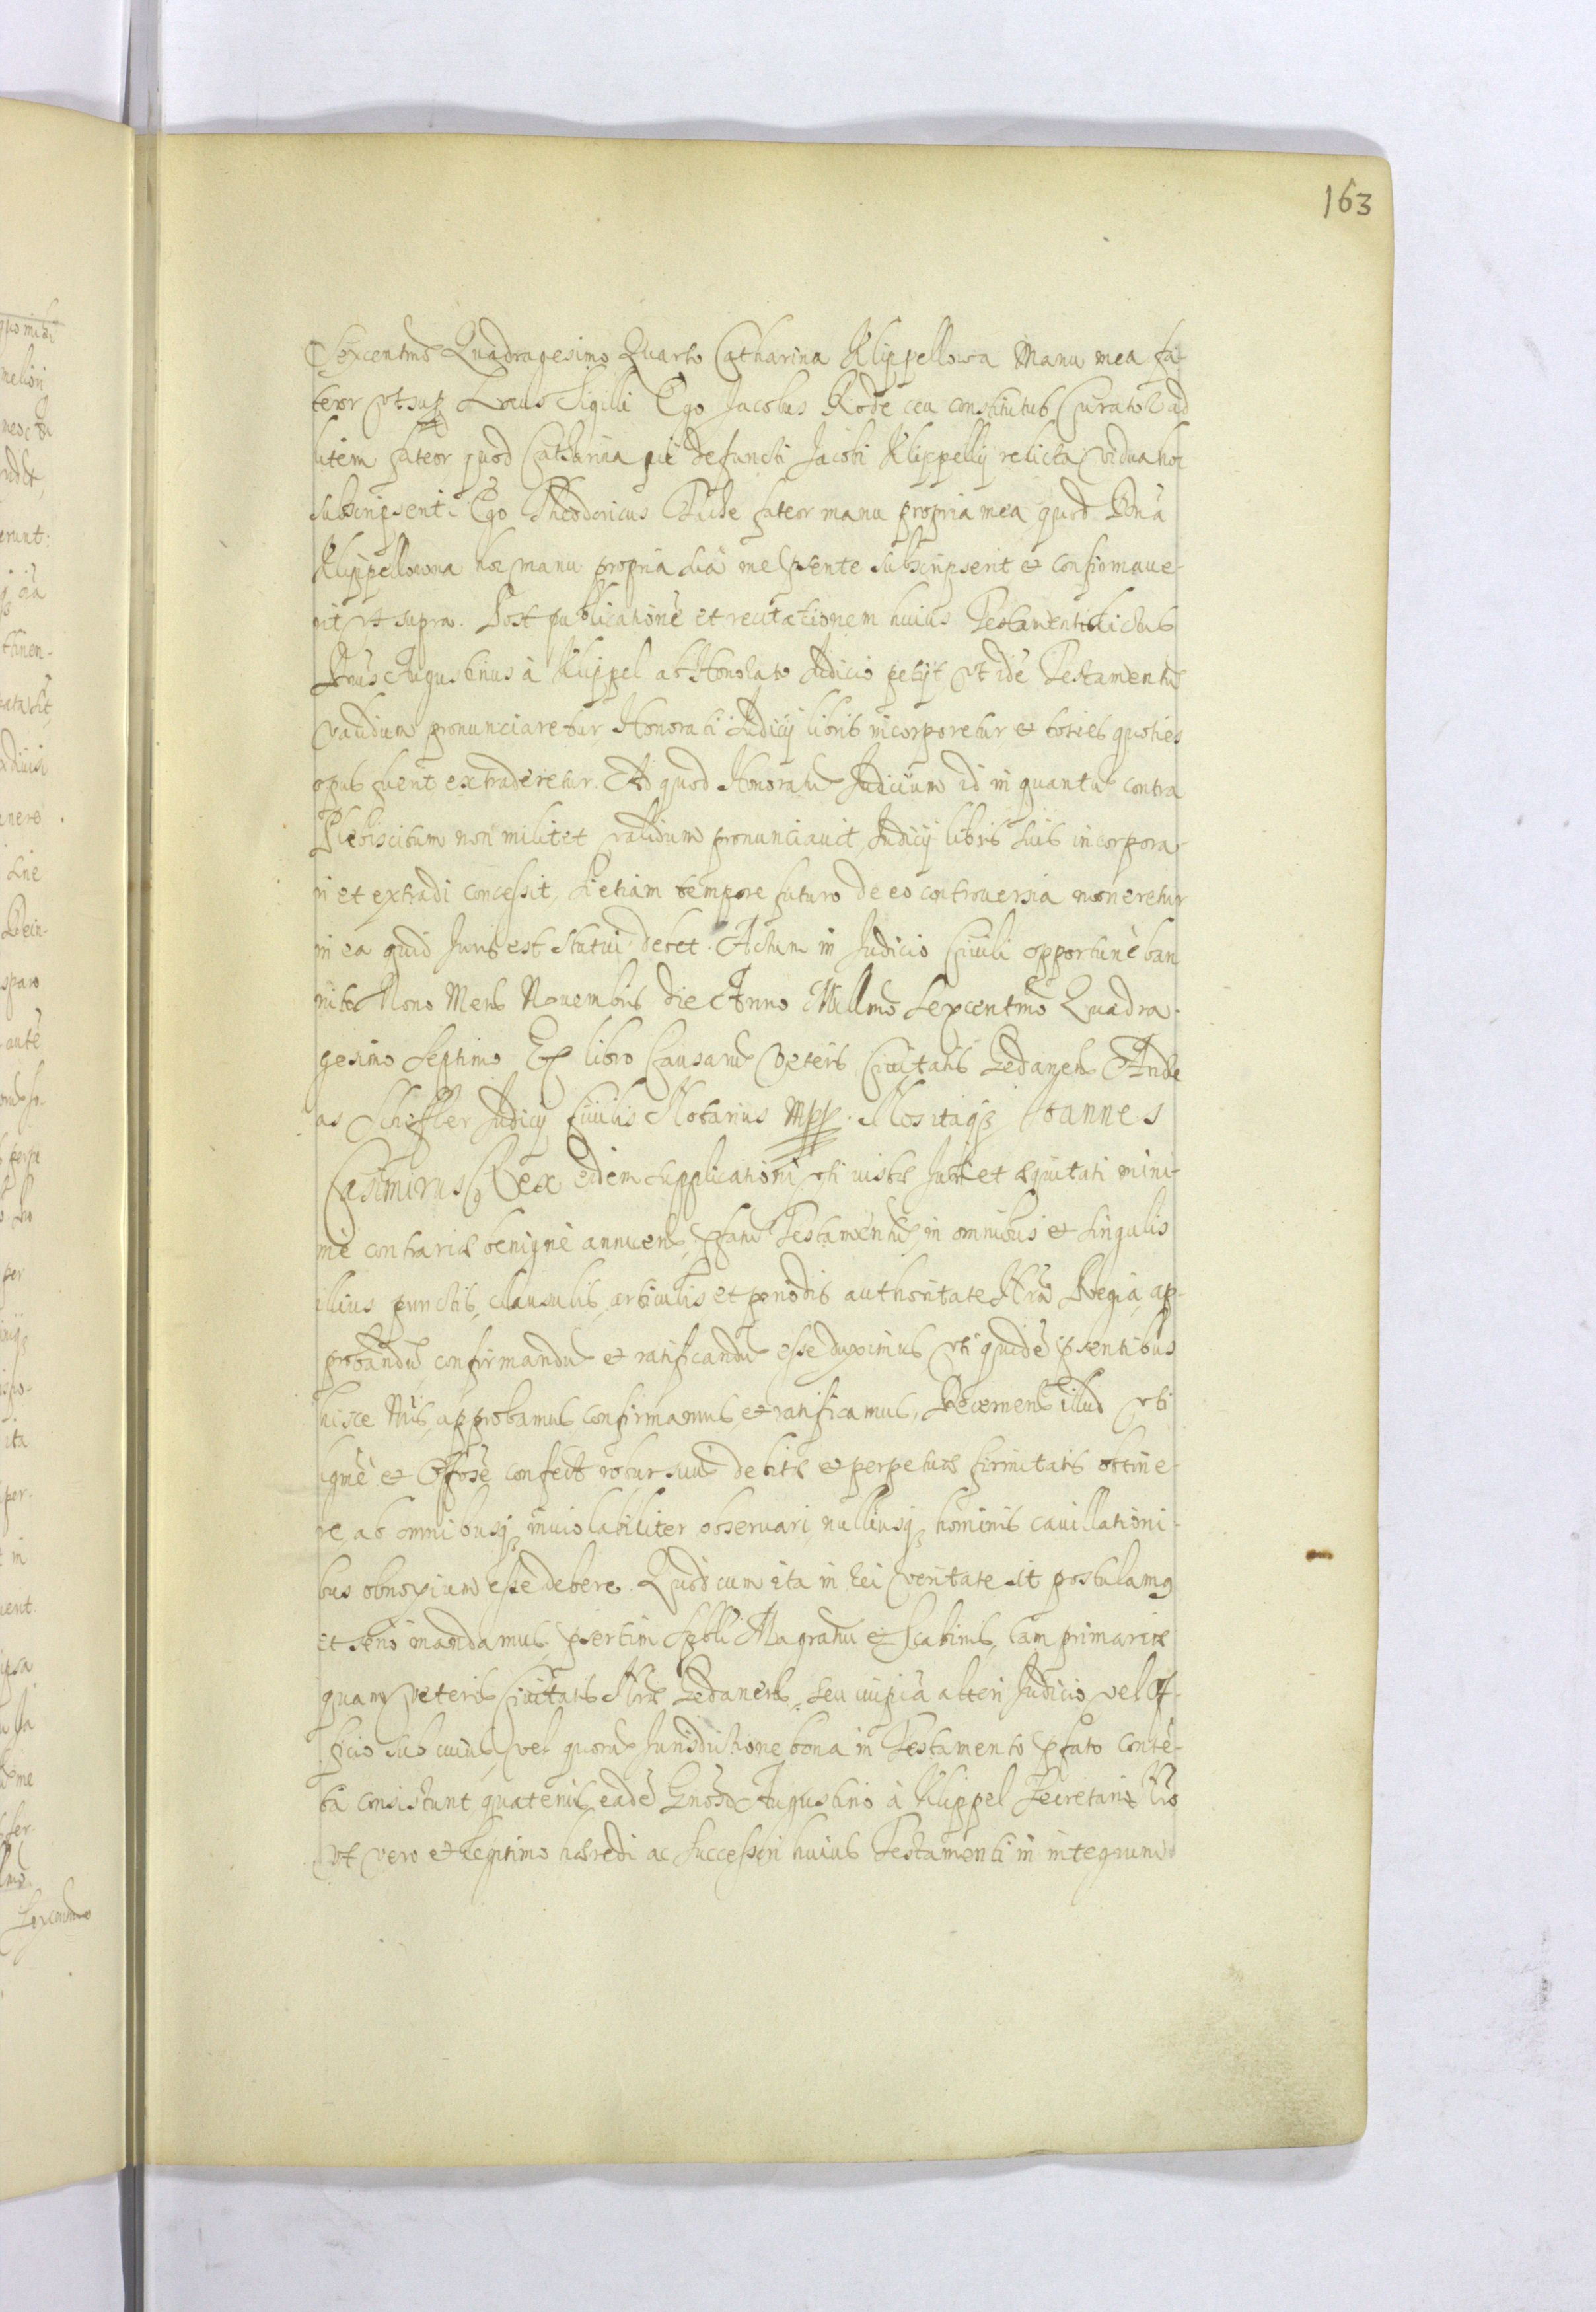 163
Sexcentmo Quadragesimo Quarto Catharina Klippellowa Manu mea fa-
teor Vt supr Locus Sigilli Ego Jacobus Rode ceu constitutus Curator ad
litem fateor quod Catharina pie defuncti Jacobi Klippelly relicta vidua hoc
subscripserit. Ego Theodoricus fateor manu propria mea quod Dona
Klippellowna hoc manu propria sua me pnte subscripserit et confirmaue-
rit Vt supra. Post publicatione et recitationem huius Testamenti dictus
Augustinus à Klippel ab Honorato Judicio petyt Vt ide Testamentu
validum pronunciaretur Honorati Judicij libris incorporetur et toties quoties
opus fuerit extraderetur. Ad quod Honoratu Judicium id in quantu contra
Plebiscitum non militet validum pronunciauit Judicij libris suis incorpora-
ri et extradi concessit, Si etiam tempore futuro de eo controuersia moueretur
in ea quid Juris est statui debet. Actum in Judicio Ciuili opportunè ban
nito Nono Mens Nouembris die Anno Millmo Sexcentmo Quadra-
gesimo Septimo Ex libro Causaru Veteris Ciuitatis Gedanen Andre
as Scheffler Judicij Ciuilis Notarius mpp. Nos itaq Joannes
Casimirus Rex eidem supplicationi vti iustæ Juri et æquitati mini-
mè contrariæ benignè annuen, pfatu Testamentu in omnibus et singulis
illius punctis, clausulis, articulis et periodis authoritate Nra Regia, ap-
probandu confirmandu et ratificandu esse duximus vti quidé psentibus
hisce Nris, approbamus, confirmamus et ratificamus, Decernens illud vti
et confect robur suu debitæ et perpetuæ firmitatis obtine-
re, ab omnibusq inuiolabiliter obseruari, nulliusq hominis cauillationi-
bus obnoxium esse debere. Quod cum ita in rei veritate sit postulamg
et serio mandamus, psertim Spbli Magratui et Scabinis, tam primariæ
quam Veteris Ciuitatis Nræ Gedanen, seu cuipia alteri Judicio vel Of-
ficio sub cuius, vel quoru Jurisdictione bona in Testamento pfato conte-
ta consistunt, quatenus eade Gnoso Augustino à Klippel Secretario Nro
Vt vero et legitimo hæredi ac Successori huius Testamenti in integrum